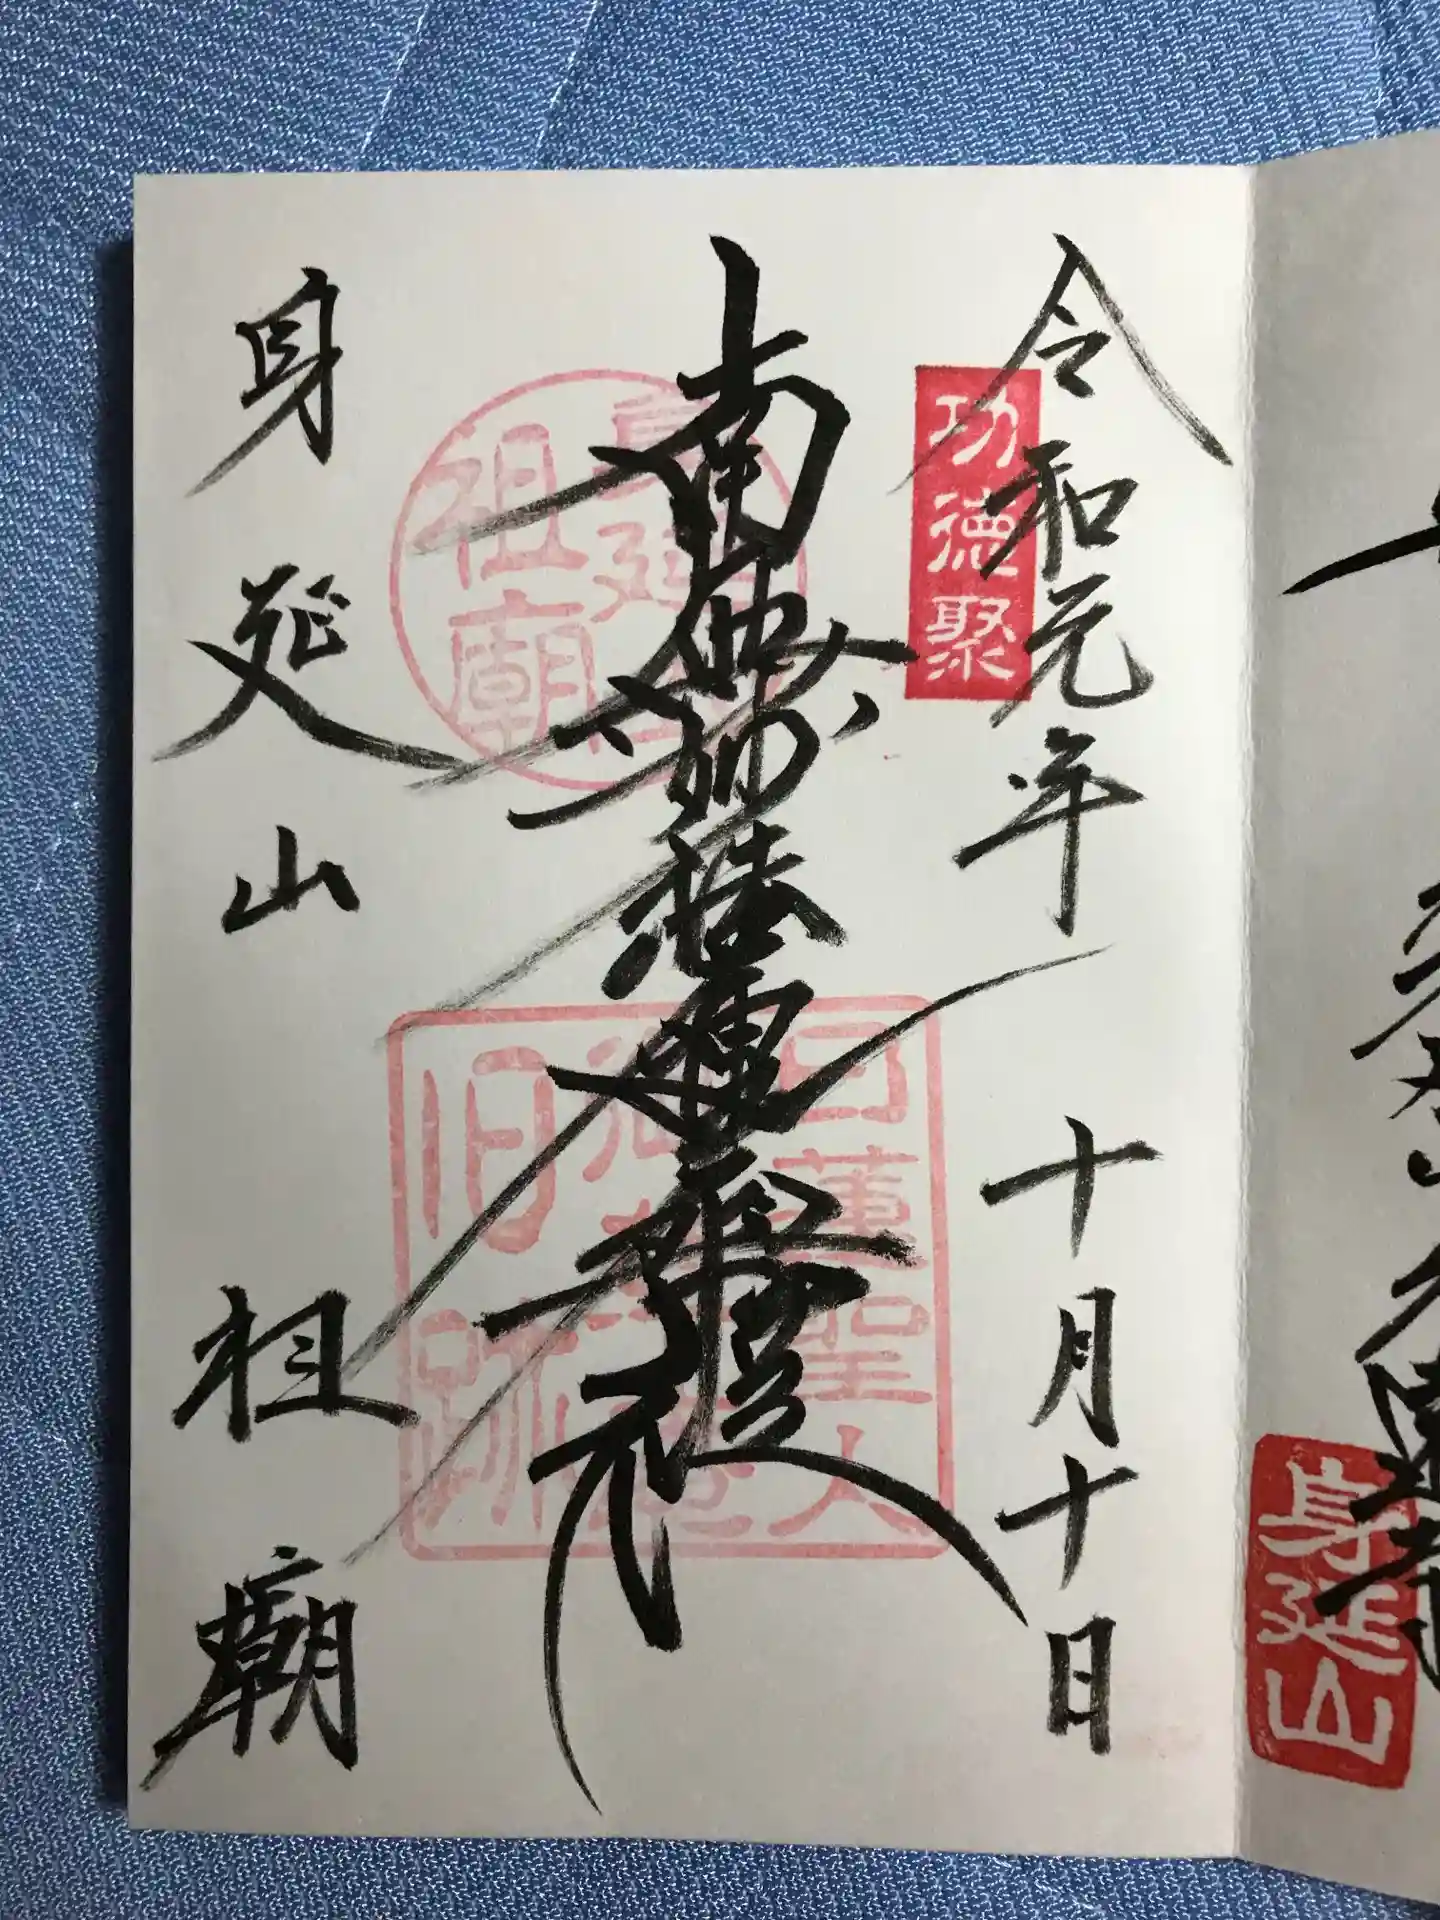 令和元年 十月十日
功德聚
南無妙法蓮華経
身延山
祖廟
日蓮聖人
御草庵
旧跡
身延山 祖廟
身延山